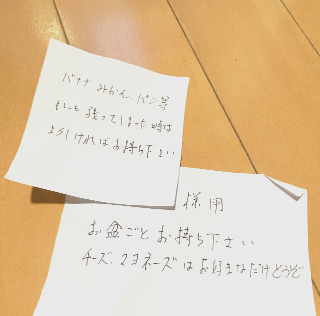 バナナ、みかん、パン等
もしも残ってしまった時は
よろしければお持ち下さい
様用
お盆ごとお持ち下さい
チーズ、マヨネーズはお好きなだけどうぞ